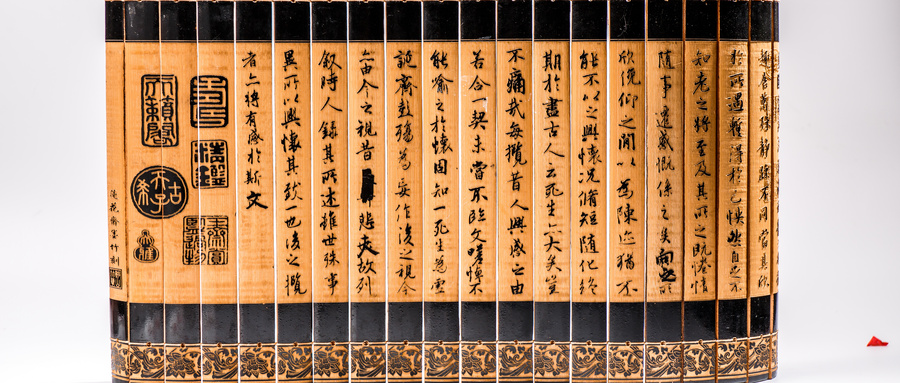 趣舍萬殊靜躁不同當其欣
於所遇暫得於己怏然自足不
知老之將至及其所之既惓情
隨事遷感慨係之矣向之所
欣俛仰之閒以為陳迹猶不
能不以之興懷況脩短隨化終
期於盡古人云死生亦大矣豈
不痛哉每攬昔人興感之由
若合一契未嘗不臨文嗟悼不
能喻之於懷固知一死生為虛
誕齊彭殤為妄作後之視今
亦由今之視昔悲夫故列
敘時人錄其所述雖世殊事
異所以興懷其致一也後之攬
者亦將有感於斯文
古稀天子